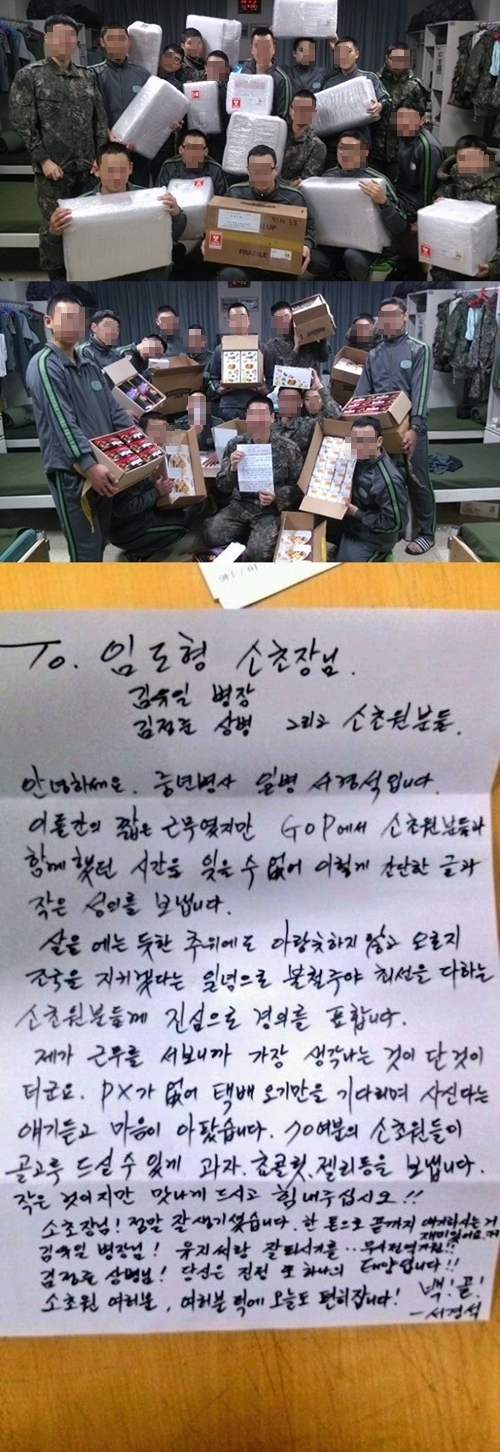 UP
FRAGILE
To. 임도형 소초장님.
김유일 병장
김정훈 상병 그리고 소초원분들.
안녕하세요. 중년병사 일병 서경석입니다.
이틀간의 짧은 근무였지만 GOP에서 소초원분들과
함께 했던 시간을 잊을 수 없어 이렇게 간단한 글과
작은 성의를 보냅니다.
살을 에는 듯한 추위에도 아랑곳하지 않고 오로지
조국을 지키겠다는 일념으로 불철주야 최선을 다하는
소초원분들께 진심으로 경의를 표합니다.
제가 근무를 서보니까 가장 생각나는 것이 단 것이
더군요. PX가 없어 택배 오기만을 기다리며 사신다는
얘기듣고 마음이 아팠습니다. 70여분의 소초원들이
골고루 드실 수 있게 과자, 쵸콜릿, 젤리등을 보냅니다.
작은 것이지만 맛나게 드시고 힘내주십시오!!
소초장님! 정말 잘생기셨습니다. 한 톤으로 끝까지 얘기하시는 거
재미있어요.
김유일 병장님! 유지씨랑 잘 되시기를.. 무사전역기원!!
김정훈 상병님! 당신은 진정 또 하나의 태양입니다!!
소초원 여러분, 여러분 덕에 오늘도 편히잡니다! 백!골!
- 서경석